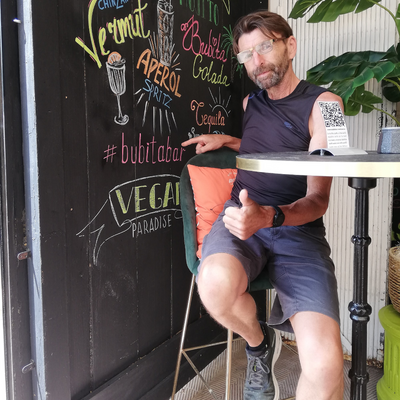 CHINZAN
Vermut
APEROL
SPRITZ
Bubita
Colada
Tequila
#bubitabar
VEGAN
PARADISE